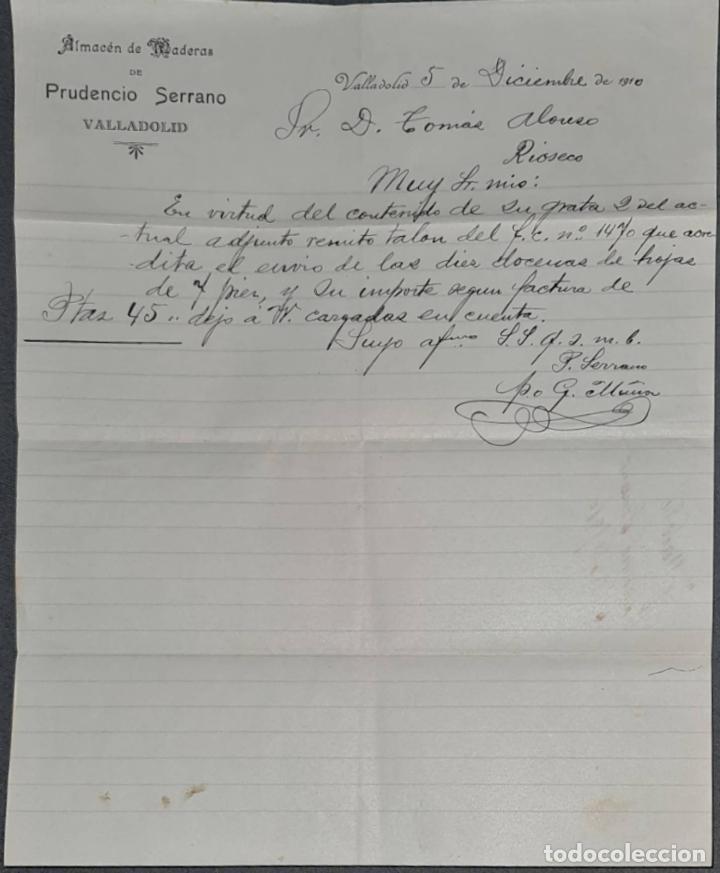 Almacén de Maderas
DE
Prudencio Serrano
VALLADOLID
Valladolid 5 de Diciembre de 1910
Sr. D. Tomás Alonso
Rioseco
Muy Sr. mio:
En virtud del contenido de su grata 2 del ac-
-tual adjunto remito talon del f.c. nº 1470 que acre
-dita el envio de las diez docenas de hojas
de 7 pies, y su importe segun factura de
Ptas 45 " dejo á V. cargadas en cuenta.
Suyo afmo S.S.q.s.m.b.
P. Serrano
p.o G. Muñoz
todocoleccion.net